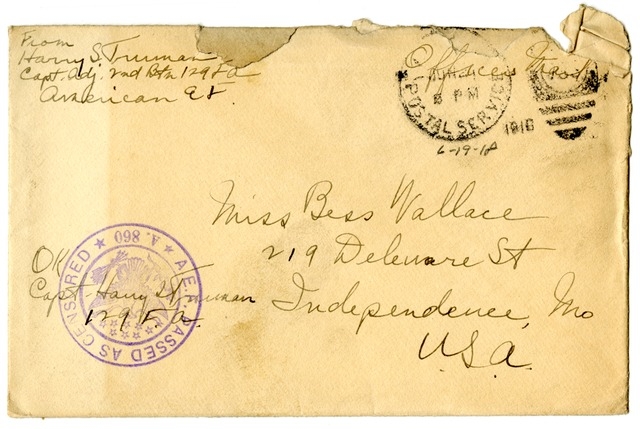 From
Harry S. Truman
Capt. Adj. 2nd Btn 129 FA
American E.F.
Officers Mail
POSTAL SERVICE
8 PM
1918
6-19-18
Miss Bess Wallace
219 Deleware St
Independence, Mo
U.S.A.
A.E.F. PASSED AS CENSORED
A. 860
OK
Capt. Harry S. Truman
129 F.A.